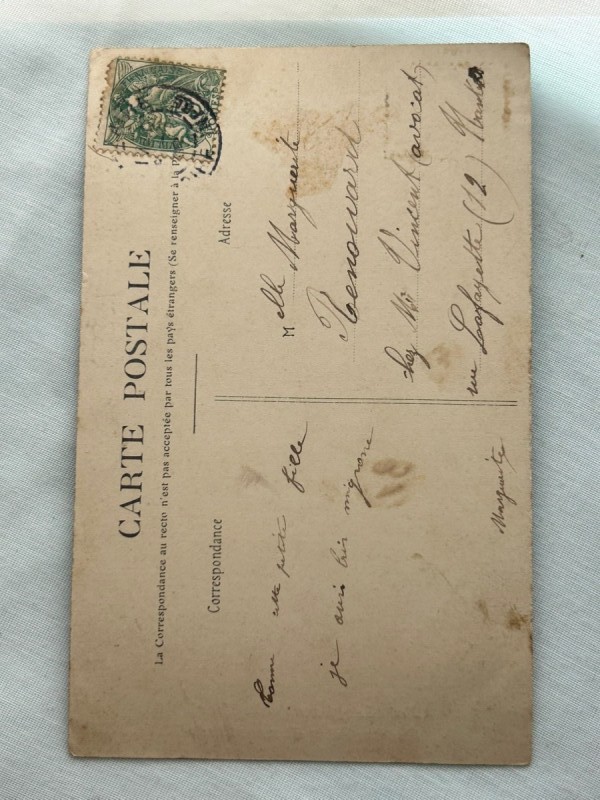 CARTE POSTALE
La Correspondance au recto n'est pas acceptée par tous les pays étrangers (Se renseigner à la
Correspondance
Adresse
Comme cette petite fille
je suis très mignone
Marguerite
Melle Marguerite
Renouard
chez Mr Vincent (avocat)
rue Lafayette (12) Nantes